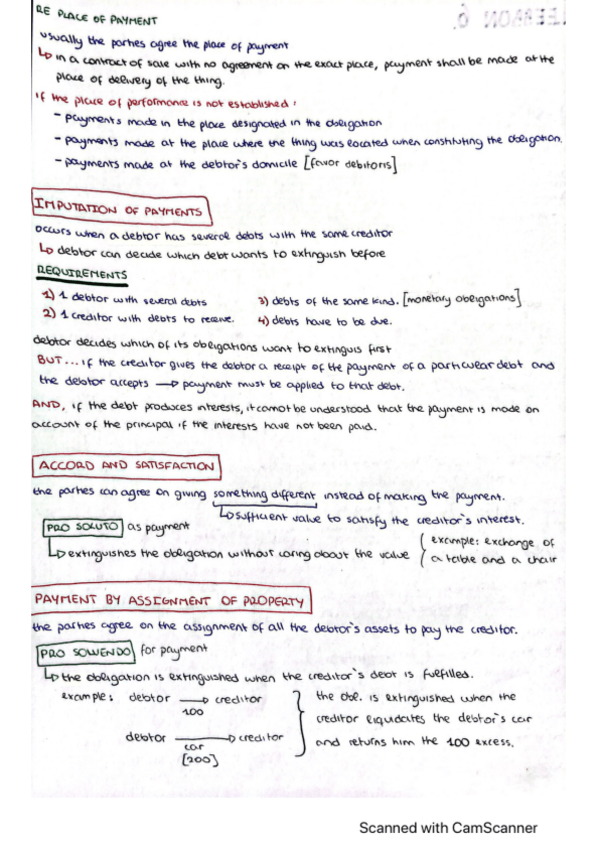 RE PLACE OF PAYMENT
LESSON 6
usually the parties agree the place of payment
↳ in a contract of sale with no agreement on the exact place, payment shall be made at the
place of delivery of the thing.
If the place of performance is not established:
- payments made in the place designated in the obligation
- payments made at the place where the thing was located when constituting the obligation.
- payments made at the debtor's domicile [favor debitoris]
IMPUTATION OF PAYMENTS
occurs when a debtor has several debts with the same creditor
↳ debtor can decide which debt wants to extinguish before
REQUIREMENTS
1) 1 debtor with several debts 3) debts of the same kind. [monetary obligations]
2) 1 creditor with debts to receive. 4) debts have to be due.
debtor decides which of its obligations want to extinguis first
BUT... if the creditor gives the debtor a receipt of the payment of a particular debt and
the debtor accepts → payment must be applied to that debt.
AND, if the debt produces interests, it cannot be understood that the payment is made on
account of the principal if the interests have not been paid.
ACCORD AND SATISFACTION
the parties can agree on giving something different instead of making the payment.
↳ sufficient value to satisfy the creditor's interest.
PRO SOLUTO as payment
↳ extinguishes the obligation without caring about the value { example: exchange of
a table and a chair
PAYMENT BY ASSIGNMENT OF PROPERTY
the parties agree on the assignment of all the debtor's assets to pay the creditor.
PRO SOLVENDO for payment
↳ the obligation is extinguished when the creditor's debt is fulfilled.
example: debtor → creditor } the obl. is extinguished when the
100 creditor liquidates the debtor's car
debtor → creditor and returns him the 100 excess.
car
[200]
Scanned with CamScanner